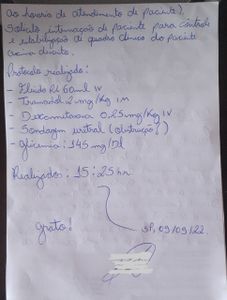 ao horario de atendimento de paciente?
Solicito internação de paciente para controle
e estabilização de quadro clinico do paciente
acima descrito.
Protocolo realizado:
- Fluido RL 60ml IV
- Tramadol 2mg/Kg IM
- Dexametasona 0.25mg/Kg IV
- Sondagem uretral (obstrução?)
- Glicemia: 145 mg/Dl
Realizados: 15:25 hr
Grato!
SP, 09/09/22